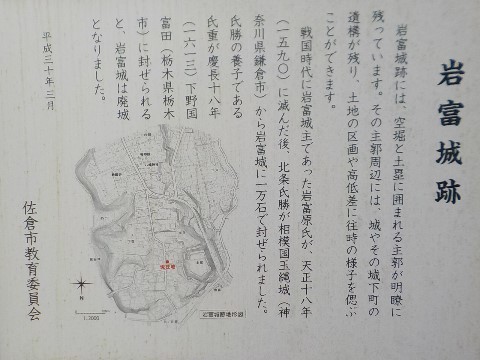 岩富城跡
岩富城跡には、空堀と土塁に囲まれる主郭が明瞭に
残っています。その主郭周辺には、城やその城下町の
遺構が残り、土地の区画や高低差に往時の様子を偲ぶ
ことができます。
戦国時代に岩富城主であった岩富原氏が、天正十八年
(一五九〇)に滅んだ後、北条氏勝が相模国玉縄城(神
奈川県鎌倉市)から岩富城に一万石で封ぜられました。
氏勝の養子である
氏重が慶長十八年
(一六一三)下野国
富田(栃木県栃木
市)に封ぜられる
と、岩富城は廃城
となりました。
平成三十年三月
佐倉市教育委員会